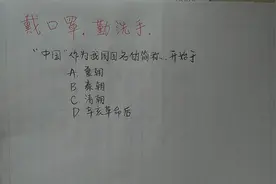 戴口罩,勤洗手.
"中国"作为我国国名的简称..开始于
A. 夏朝
B. 秦朝
C. 清朝
D 辛亥革命后